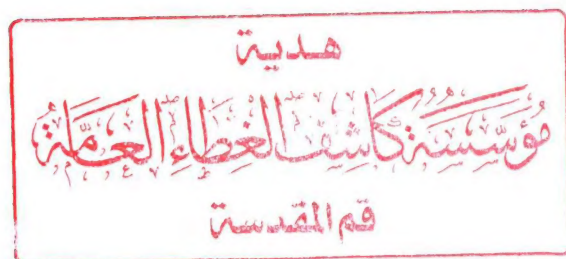 هدية
مؤسسة كاشف الغطاء العامة
قم المقدسة